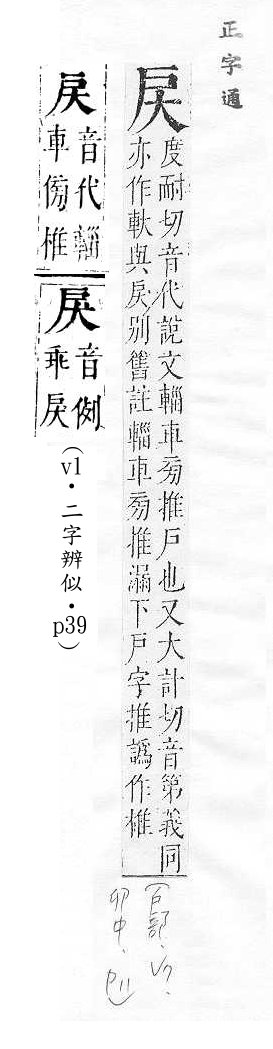 正字通
戻
度耐切音代說文輜車旁推戶也又大計切音第義同
亦作軑與戾別舊註輜車旁推漏下戶字推譌作椎
戻
音代輜
車傍椎
戾
音例
乖戾
(v1・二字辨似・p39)
卯中、p11)